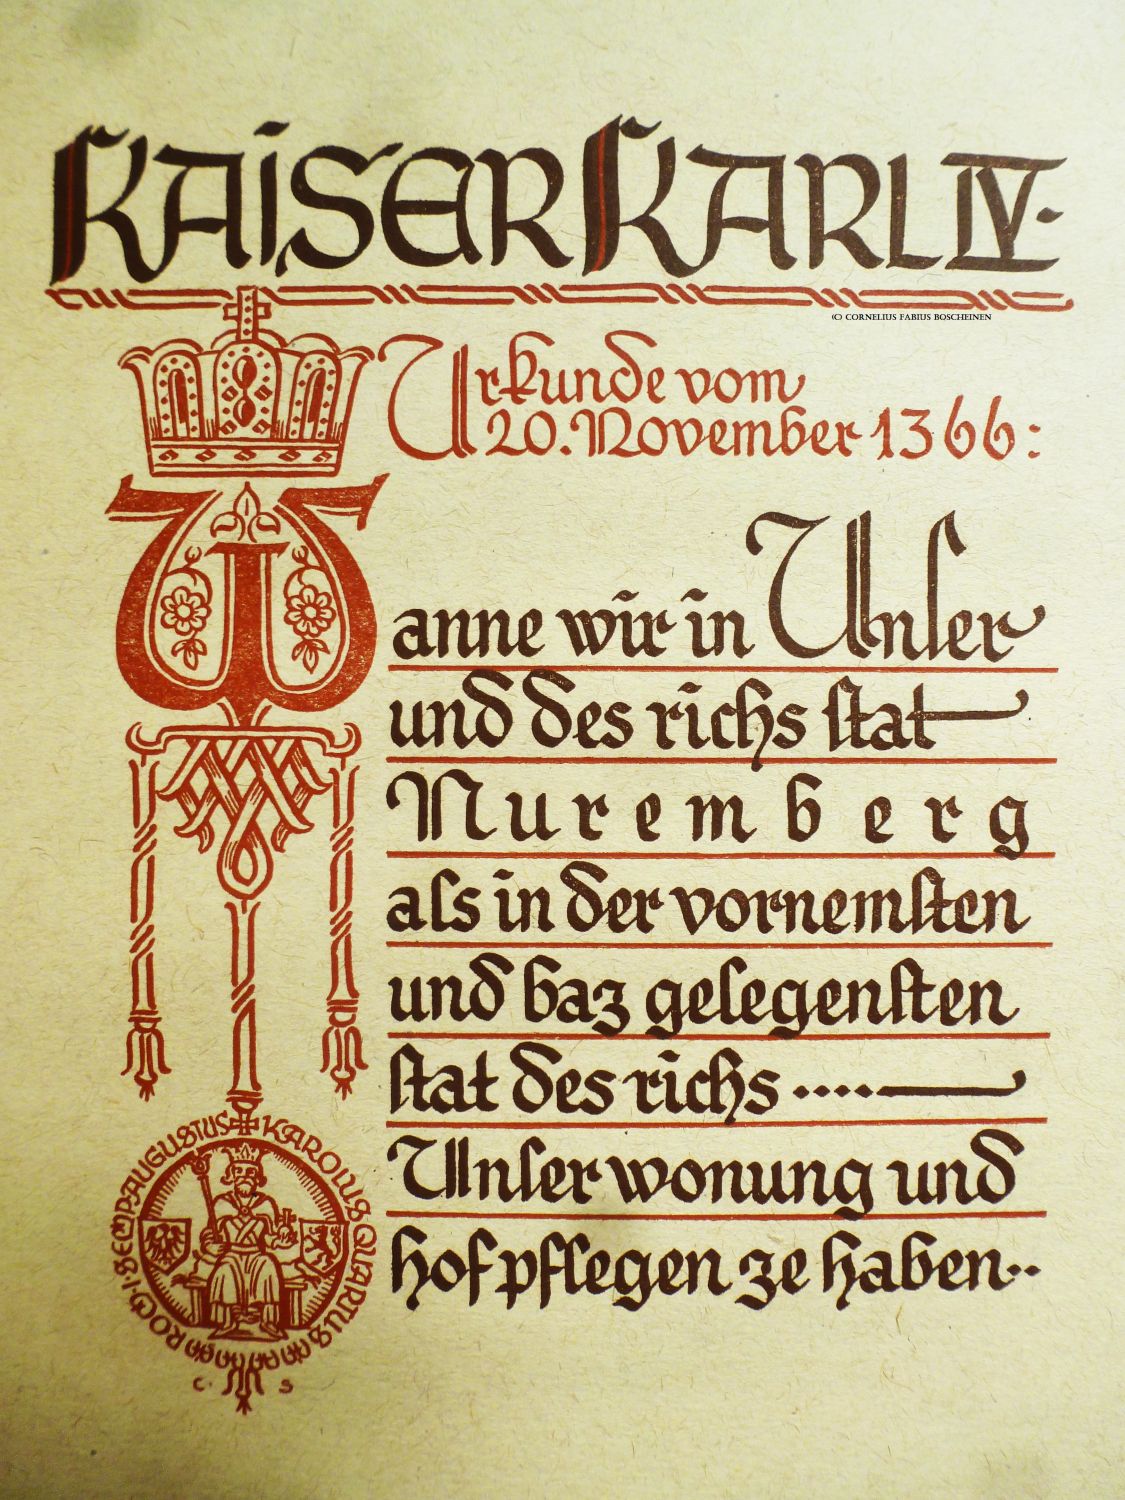 KAISER KARL IV.
(C) CORNELIUS FABIUS BOSCHEINEN
Urkunde vom
20. November 1366:
Wanne wir in Unser
und des richs stat
Nuremberg
als in der vornemsten
und baz gelegensten
stat des richs ....
Unser wonung und
hof pflegen ze haben..
KAROLUS QUARTUS
ROM·I·SEMP·AUGUSTUS
C· S